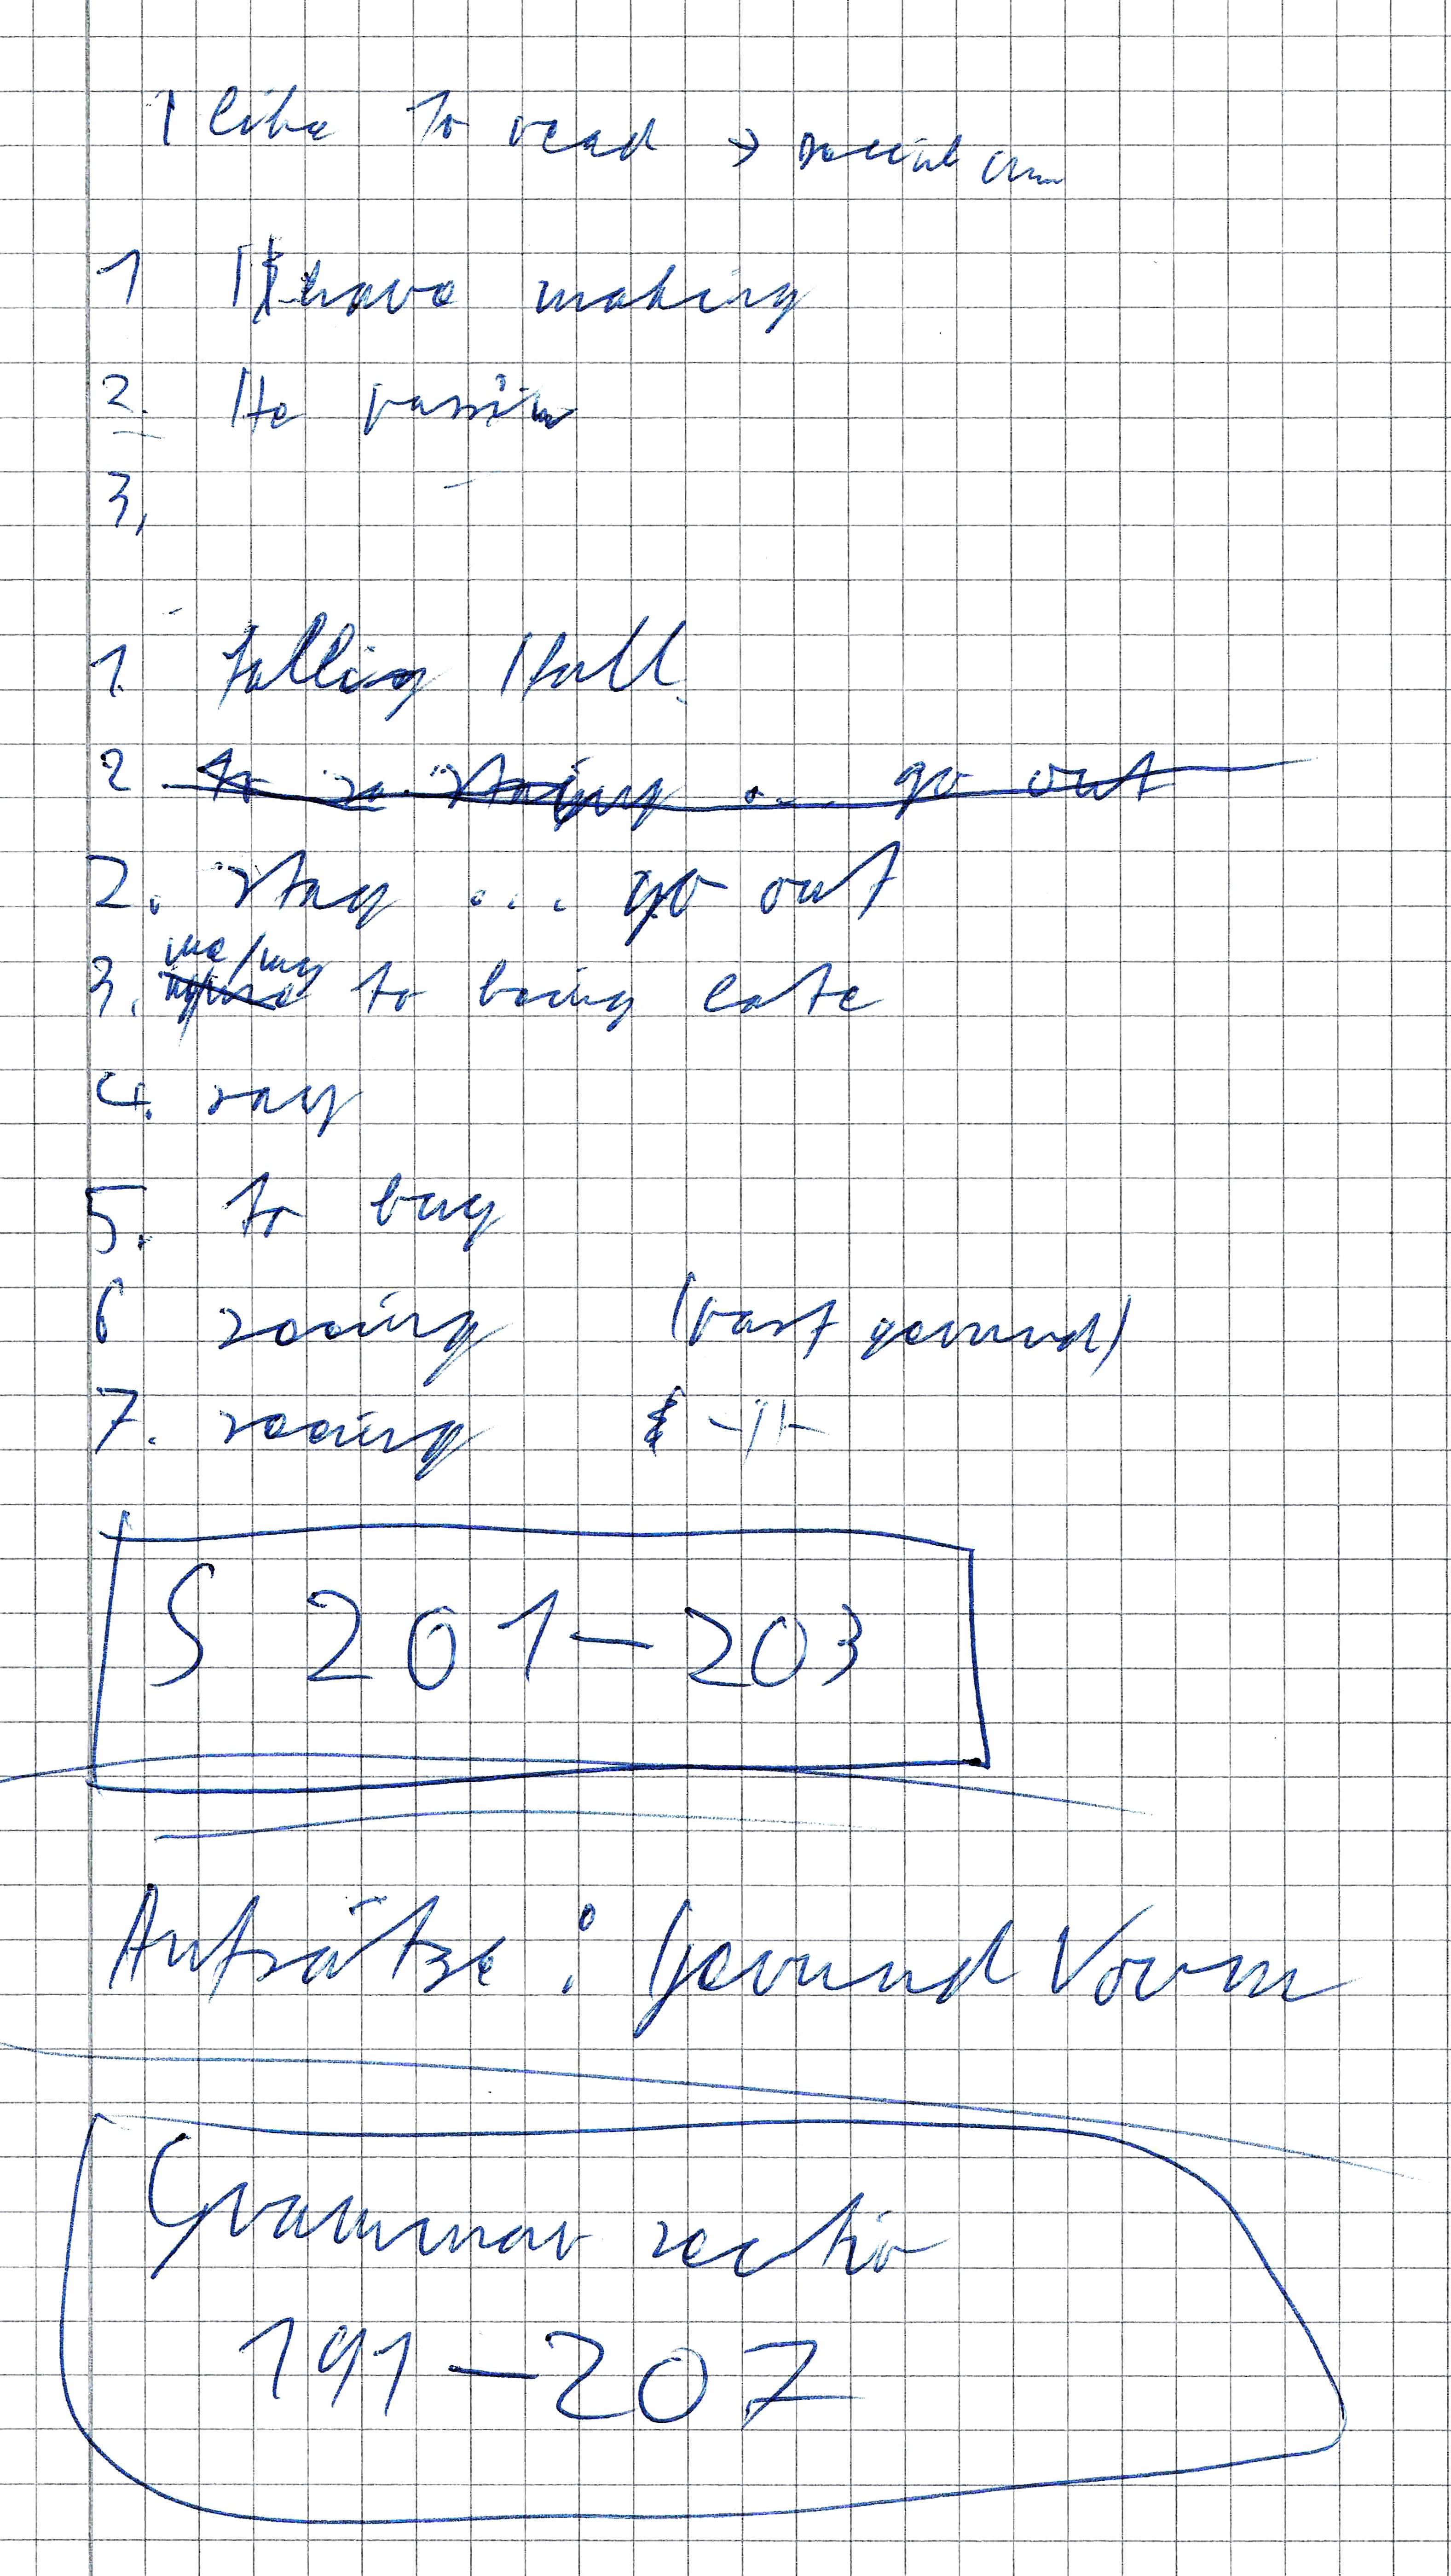 I like to read →
1 I have making
2. He
3.
1. telling Hall.
2 to go out
2. stay ... go out
3. me/my to being late
4. say
5. to buy
6 seeing (past gerund)
7. seeing -11-
S 201-203
Aufsätze: Gerund Vorm
Grammar sectio
191-207